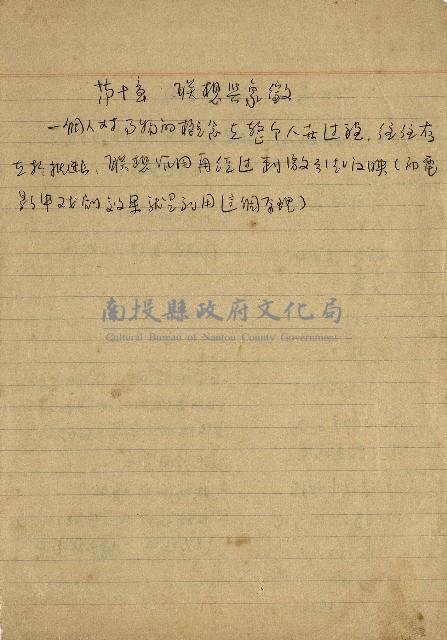 第十章 联想与象徵
一個人对事物的概念在整个人生过程,往往存
在於推進、联想作用再经过刺激引起反映(如電
影中戏剧效果就是利用這個原理)
南投縣政府文化局
Cultural Bureau of Nantou County Government